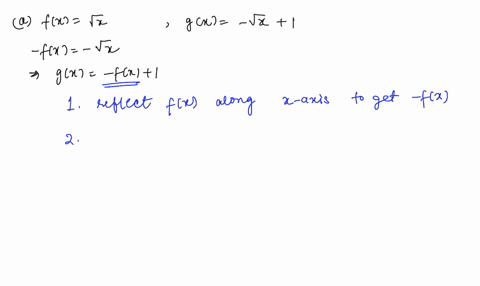 (a) f(x) = √x , g(x) = -√x + 1
-f(x) = -√x
⇒ g(x) = -f(x) + 1
1. reflect f(x) along x-axis to get -f(x)
2.